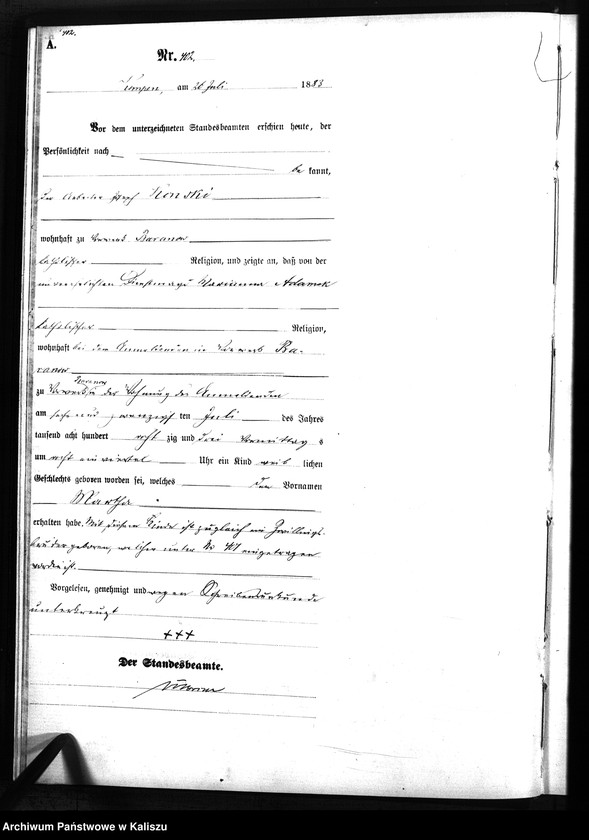 402.
A.
Nr. 402.
Kempen, am 26 Juli 1883
Vor dem unterzeichneten Standesbeamten erschien heute, der
Persönlichkeit nach
be kannt,
der Arbeiter Joseph Konski
wohnhaft zu Vorwerk Baranow
katholischer Religion, und zeigte an, daß von der
unverehelichten Dienstmagd Marianna Adamek
katholischer Religion,
wohnhaft bei dem Anmeldenden in Vorwerk Ba-
ranow
Baranow
zu Vorwerk in der Wohnung des Anmeldenden
am sechs und zwanzigsten Juli des Jahres
tausend acht hundert acht zig und drei Vormittags
um acht ein viertel Uhr ein Kind weib lichen
Geschlechts geboren worden sei, welches den Vornamen
Martha
erhalten habe. Mit diesem Kinde ist zugleich ein Zwillings-
bruder geboren, welcher unter No 401 eingetragen
worden ist.
Vorgelesen, genehmigt und wegen Schreibensunkunde
unterkreuzt
+++
Der Standesbeamte.
Archiwum Państwowe w Kaliszu